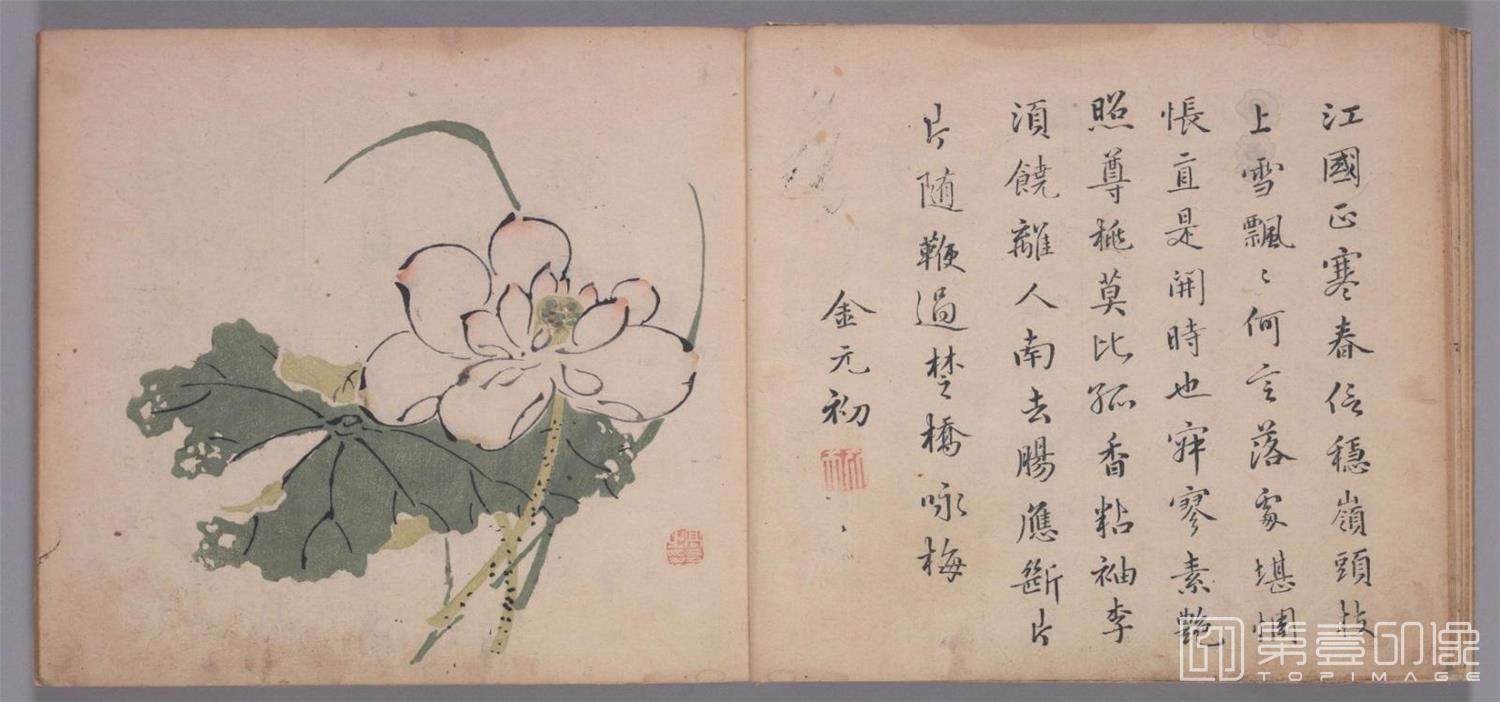 江國正寒春信穩嶺頭枝
上雪飄〻何言落處堪惆
悵直是開時也寂寥素艷
照尊桃莫比孤香粘袖李
須饒離人南去腸應斷片
片随鞭過楚橋咏梅
金元初
第壹印像
TOPIMAGE